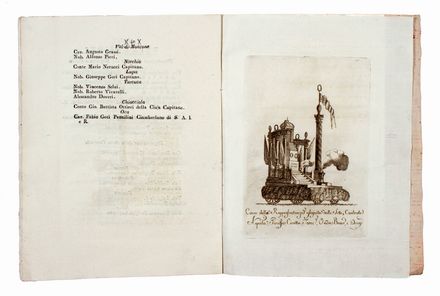 X lv X
Val-di-Montone
Cav. Augusto Grassi.
Nob. Alfonso Picci.
Nicchio
Conte Mario Nerucci Capitano.
Lupa
Nob. Giuseppe Gori Capitano.
Tartuca
Nob. Vincenzo Selvi.
Nob. Roberto Vivarelli.
Alessandro Doveri.
Chiocciola
Conte Gio. Battista Ottieri della Ciaja Capitano.
Oca
Cav. Fabio Gori Pannilini Ciamberlano di S. A. I.
e R.
Carro della delle Sette Contrade
Aquila